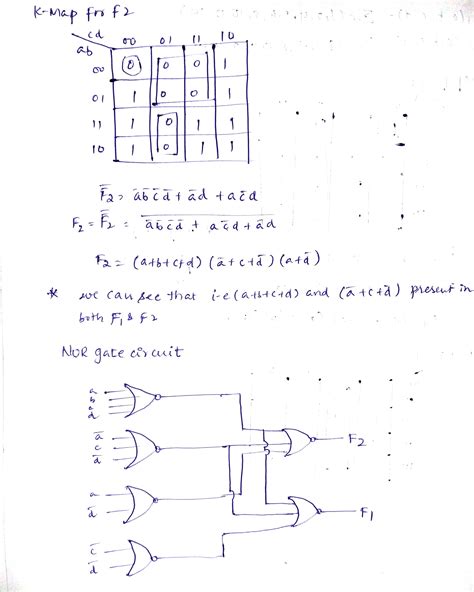 K-Map for F2
cd
ab
00 01 11 10
00 0 0 0 1
01 1 0 0 1
11 1 0 1 1
10 1 0 1 1
F̅₂ = a̅b̅c̅d̅ + a̅d + ac̅d
F₂ = F̿₂ = a̅b̅c̅d̅ + ac̅d + a̅d
F₂ = (a+b+c+d) (a̅+c+d̅) (a+d̅)
* we can see that i-e (a+b+c+d) and (a̅+c+d̅) present in
both F₁ & F2
NOR gate circuit
a
b
d
a̅
c
d̅
F₂
a
d̅
F₁
c̅
d̅